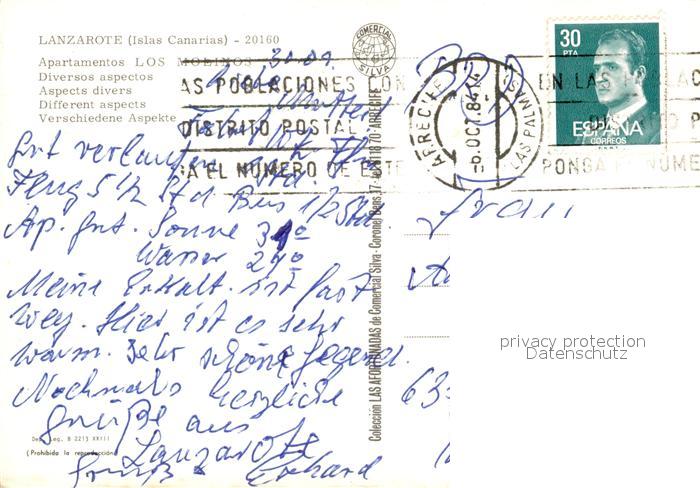 LANZAROTE (Islas Canarias) - 20160
Apartamentos LOS MOLINOS
Diversos aspectos
Aspects divers
Different aspects
Verschiedene Aspekte
30.09.
Mutter
gut verlaufen
Flug 5 1/2 Std Bus 1/2 Std.
Ap. gut. Sonne
Wasser
Meine Erkält. ist fast
weg. Hier ist es sehr
warm. Sehr schöne Gegend.
Nochmals herzliche
Grüße aus
Lanzarote
Erhard
Dep. Leg. B 2213 XXIII
(Prohibida la reproducción)
COMERCIAL SILVA
Colección LAS AFORTUNADAS de Comercial Silva - Coronel Bens, 17 - ARRECIFE
AS POBLACIONES CON
DISTRITO POSTAL
GA EL NUMERO DE ESTE
ARRECIFE
-6.OCT.84
LAS PALMAS
EN LA
PONGA NUME
30
PTA
ESPAÑA
CORREOS
Frau
63
privacy protection
Datenschutz